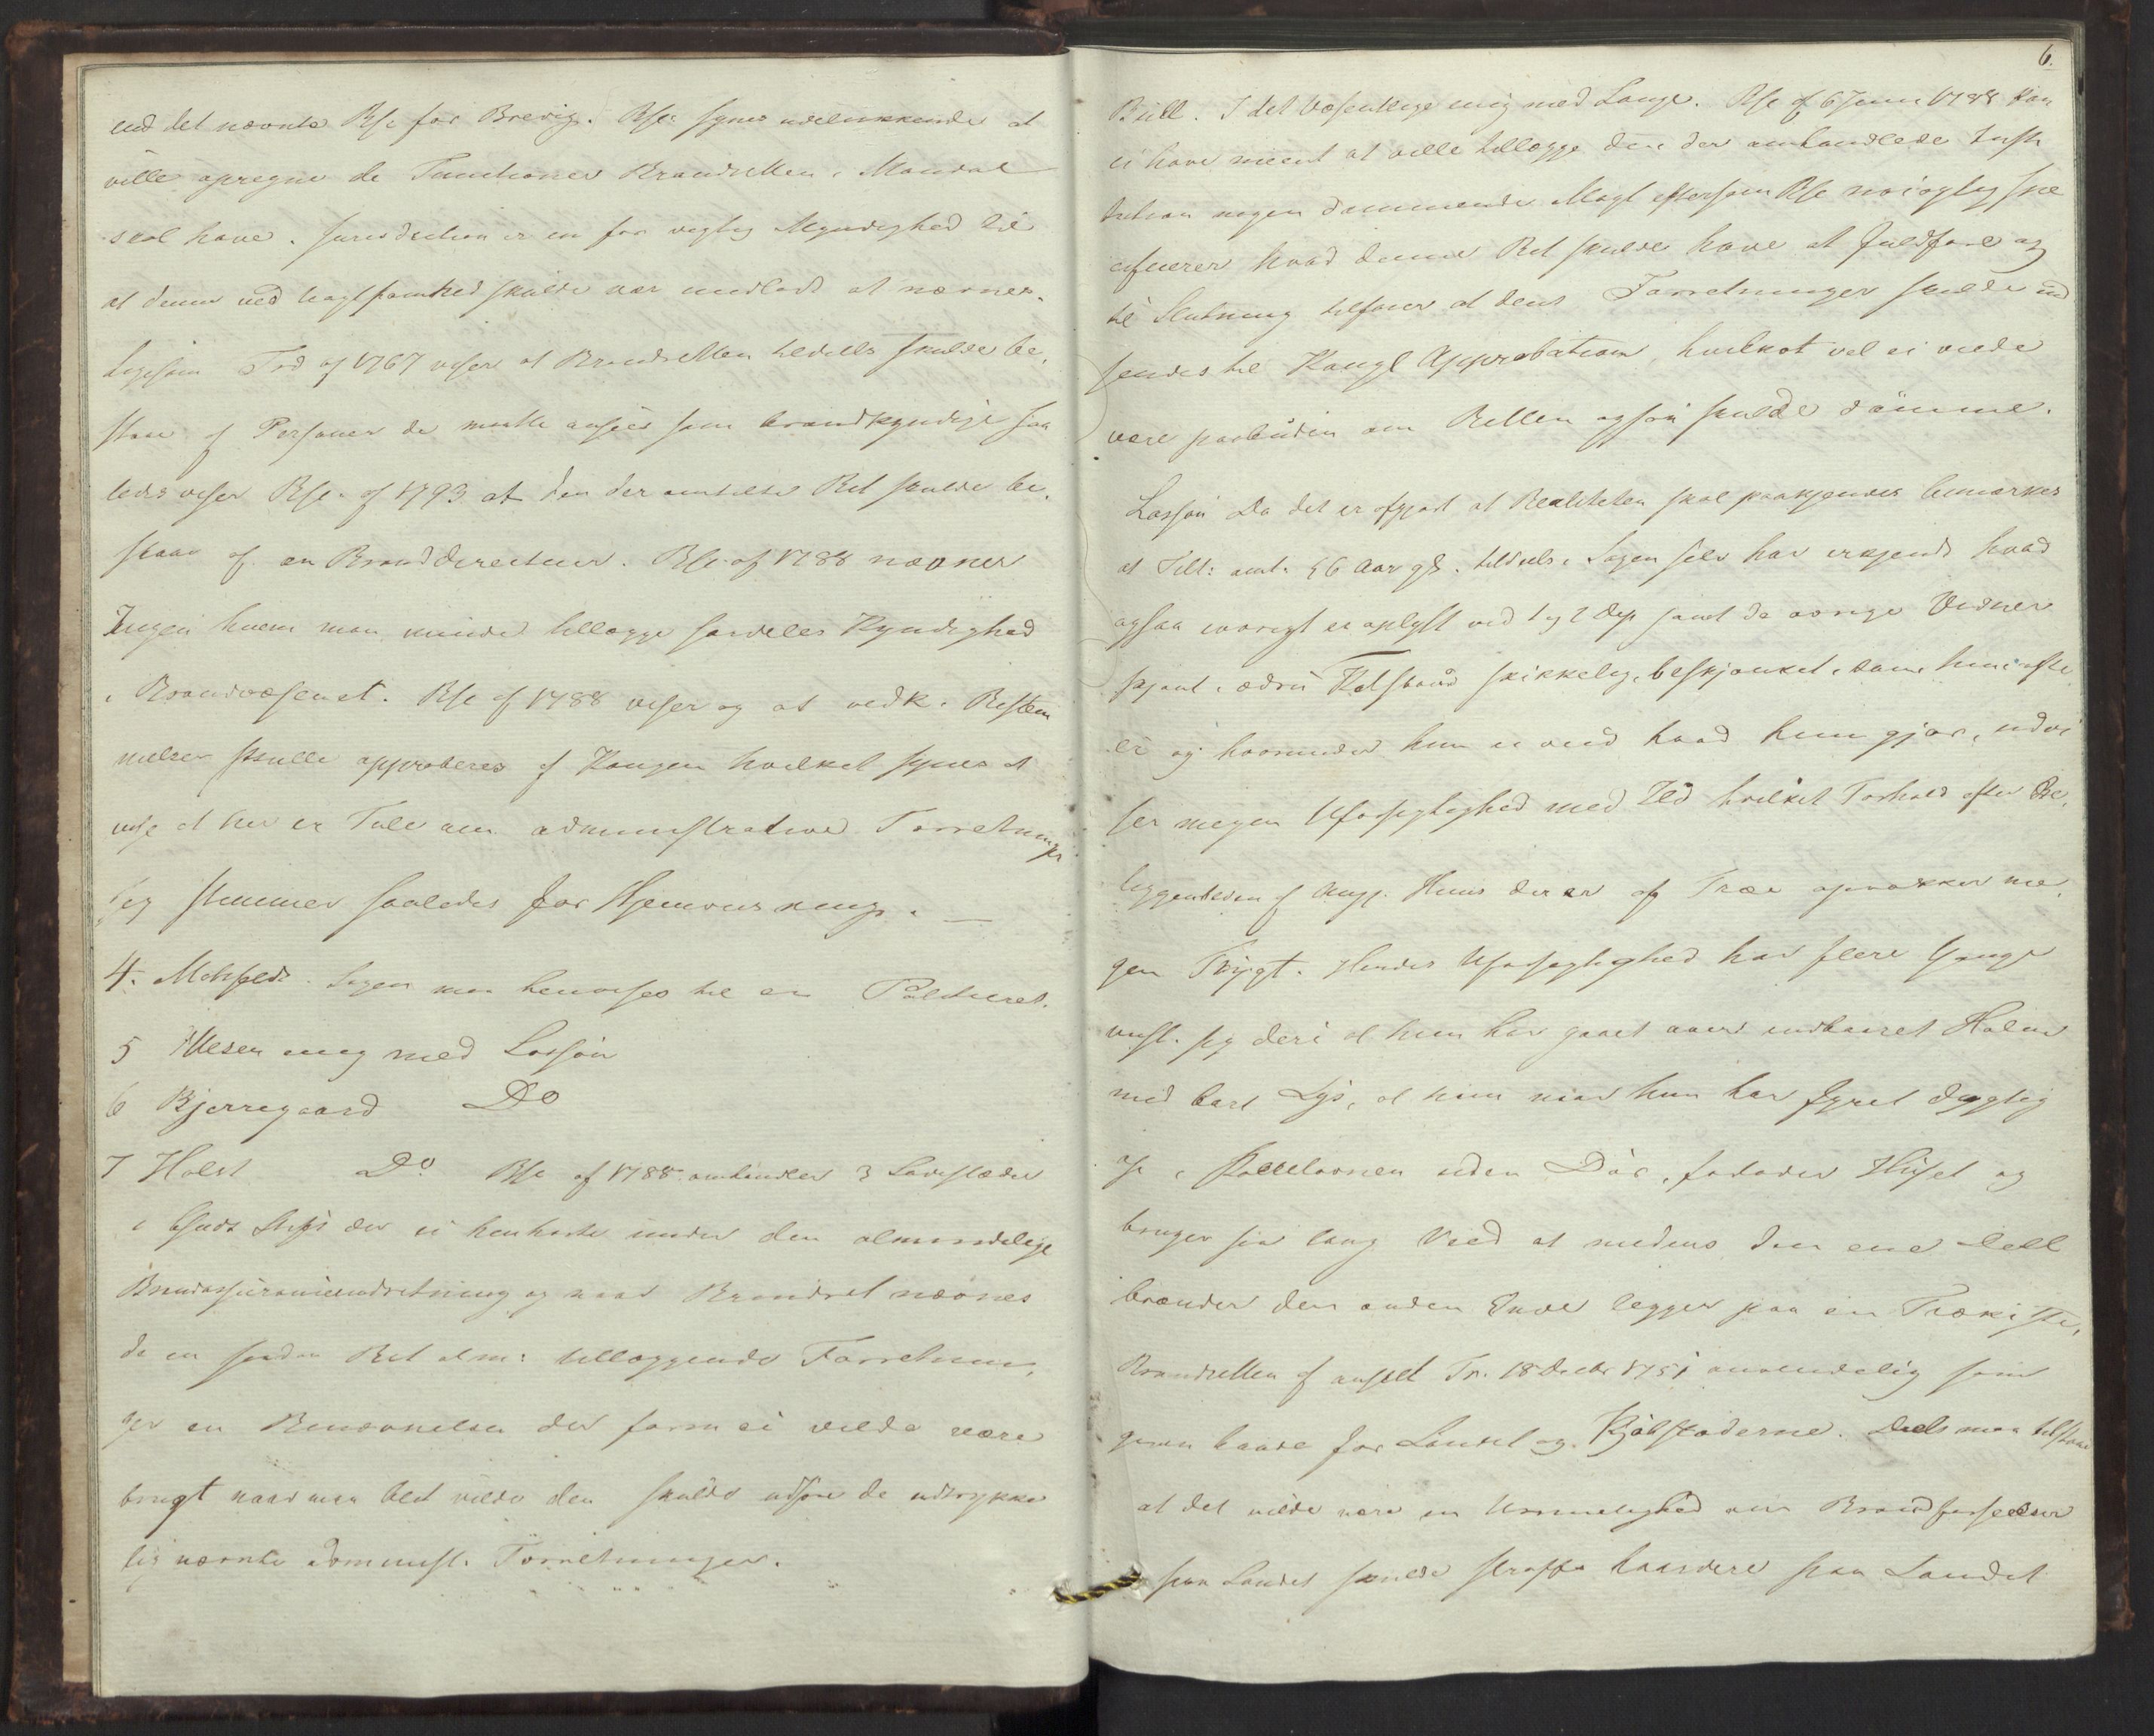 end det nævnte Rsc for Brevig. Rsc: synes udelukkende at
ville opregne de Functioner Brandretten i Mandal
skal have. Jurisdiction er en for vigtig Myndighed til
at denne ved Uagtsomhed skulde være undladt at nævnes.
Ligesom Frd af 1767 viser at Brandretten tildeels skulde be-
staae af Personer der maatte ansees som brandkyndige saa
ledes viser Rsc. af 1793 at den der omtalte Ret skulde be-
staae af en Branddirecteur. Rsc. af 1788 nævner
Ingen hvem man kunde tillægge særdeles Kyndighed
i Brandvæsenet. Rsc af 1788 viser og at vedk. Bestem
melser skulle approberes af Kongen hvilket synes at
vise at her er Tale om administrative Forretninger
Jeg stemmer saaledes for Hjemviisning. —
4. Motzfeldt. Sagen maa henvises til en Politieret.
5 Ilesen enig med Lasson
6 Bjerregaard Do
7 Holst Do Rsc af 1788 omhandler 3 Ladestæder
i Chsds Stift der ei henhørte under den almindelige
Brandassuranceindretning og naar Brandret nævnes
da en saadan Ret alm: tillæggende Forretnin-
ger en Benævnelse der form ei vilde være
brugt naar man blot vilde den skulde udføre de udtrykke
lig nævnte administ. Forretninger.
6.
Bull. I det Væsentlige enig med Lange. Rsc af 6 Juni 1788 kan
ei have meent at ville tillægge den der omhandlede Insti
tution nogen dømmende Magt eftersom Rsc nøiagtig spe
cificerer hvad denne Ret skulde have at fuldføre og
til Slutning tilføier at dens Forretninger skulde ind
sendes til Kongl Approbation, hvilket vel ei vilde
være paabuden om Retten ogsaa skulde dömme.
Lasson Da det er afgjort at Realiteten skal paakjendes bemærkes
at Tilt: amt. 56 Aar gl. tildeels i Sagen selv har erkjendt hvad
ogsaa iøvrigt er oplyst ved 1 og 2 Dep samt de øvrige Vidner
skjønt i ædru Tilstand skikkelig, beskjænket, som hun ofte
er og hvorunder hun ei veed hvad hun gjør, udvi
ser megen Uforsigtighed med Ild hvilket Forhold efter Be-
liggenheden af Angj. Huus der er af Træe opvækker me-
gen Frygt. Hendes Uforsigtighed har flere Gange
viist sig deri at hun har gaaet over indbaaret Halm
med bart Lys, at hun naar hun har fyret dygtig
op i Kakkelovnen uden Dör, forlader Huset og
bruger saa lang Veed at medens den ene Deel
brænder den anden Ende ligger paa en Trækiste.
Brandretten af anseet Fr. 18 Decbr 1751 anvendelig som
given baade for Landet og Kjøbstæderne. Deels maa tilstaae
at det vilde være en Urimelighed om Brandforseelser
paa Landet skulde straffes haardere paa Landet